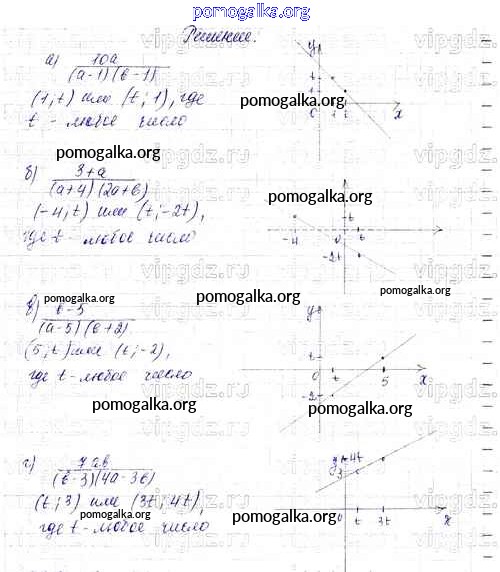 pomogalka.org
Решение:
а) 10a
(a-1)(b-1)
(1; t) или (t; 1), где
t - любое число
y
t
1
0 1 t x
pomogalka.org
pomogalka.org
б) 3+a
(a+4)(2a+b)
(-4; t) или (t; -2t),
где t - любое число
pomogalka.org
t
-4 0 t
-2t
в) b-5
(a-5)(b+2)
(5; t) или (t; -2),
где t - любое число
pomogalka.org
pomogalka.org
y
t
0 t 5 x
-2
pomogalka.org
pomogalka.org
г) 7ab
(b-3)(4a-3b)
(t; 3) или (3t; 4t),
где t - любое число
pomogalka.org
y 4t
3
0 t 3t x
pomogalka.org
vipgdz.ru